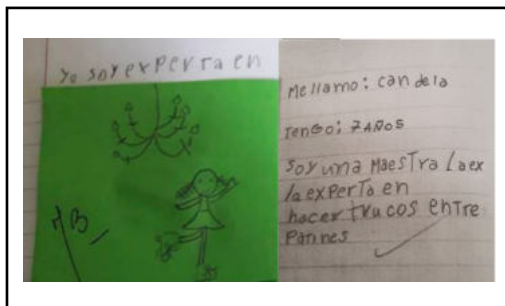 Yo soy experta en
MB
Mellamo: candela
Tengo: 7 AÑOS
soy una Maestra la ex
la experta en
hacer trucos entre
Patines